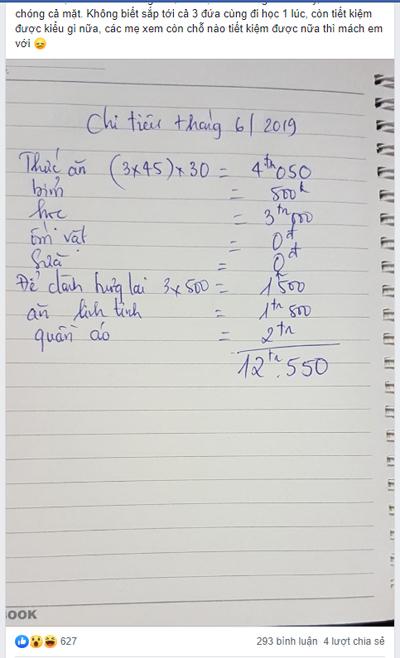 chóng cả mặt. Không biết sắp tới cả 3 đứa cùng đi học 1 lúc, còn tiết kiệm
được kiểu gì nữa, các mẹ xem còn chỗ nào tiết kiệm được nữa thì mách em
với 😞
Chi tiêu tháng 6/2019
Thức ăn (3x45)x30 = 4tr050
bỉm = 500k
học = 3tr000
ốm vặt = 0đ
Sữa = 0đ
Để dành hưng lai 3x500 = 1500
ăn linh tinh = 1tr500
quần áo = 2tr
12tr.550
OOK
627
293 bình luận 4 lượt chia sẻ